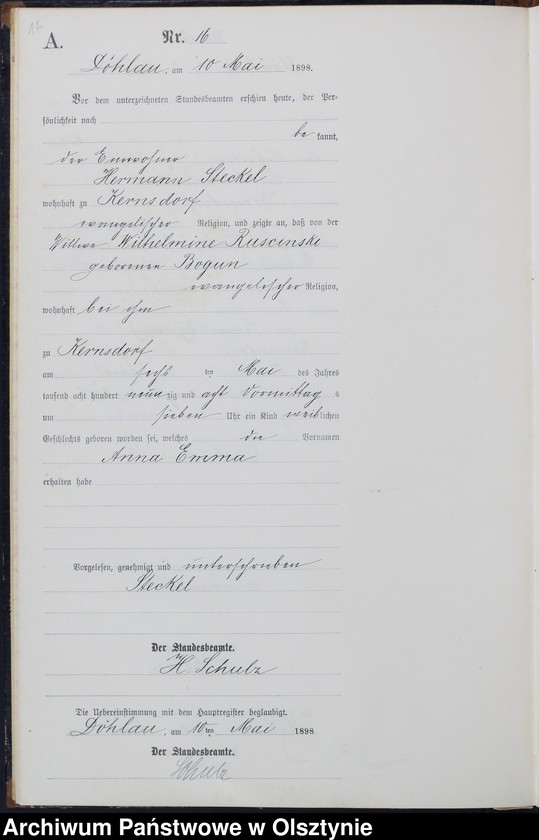 17
A.
Nr. 16
Döhlau, am 10 Mai 1898.
Vor dem unterzeichneten Standesbeamten erschien heute, der Per-
sönlichkeit nach
be kannt,
der Einwohner
Hermann Steckel
wohnhaft zu Kernsdorf
evangelischer Religion, und zeigte an, daß von der
Wittwe Wilhelmine Ruscinski
geborenen Bogun
evangelischer Religion,
wohnhaft bei ihm
zu Kernsdorf
am sechs ten Mai des Jahres
tausend acht hundert neun zig und acht Vormittag s
um sieben Uhr ein Kind weiblichen
Geschlechts geboren worden sei, welches die Vornamen
Anna Emma
erhalten habe
Vorgelesen, genehmigt und unterschrieben
Steckel
Der Standesbeamte.
H. Schulz
Die Uebereinstimmung mit dem Hauptregister beglaubigt.
Döhlau, am 10ten Mai 1898
Der Standesbeamte.
Schulz
Archiwum Państwowe w Olsztynie